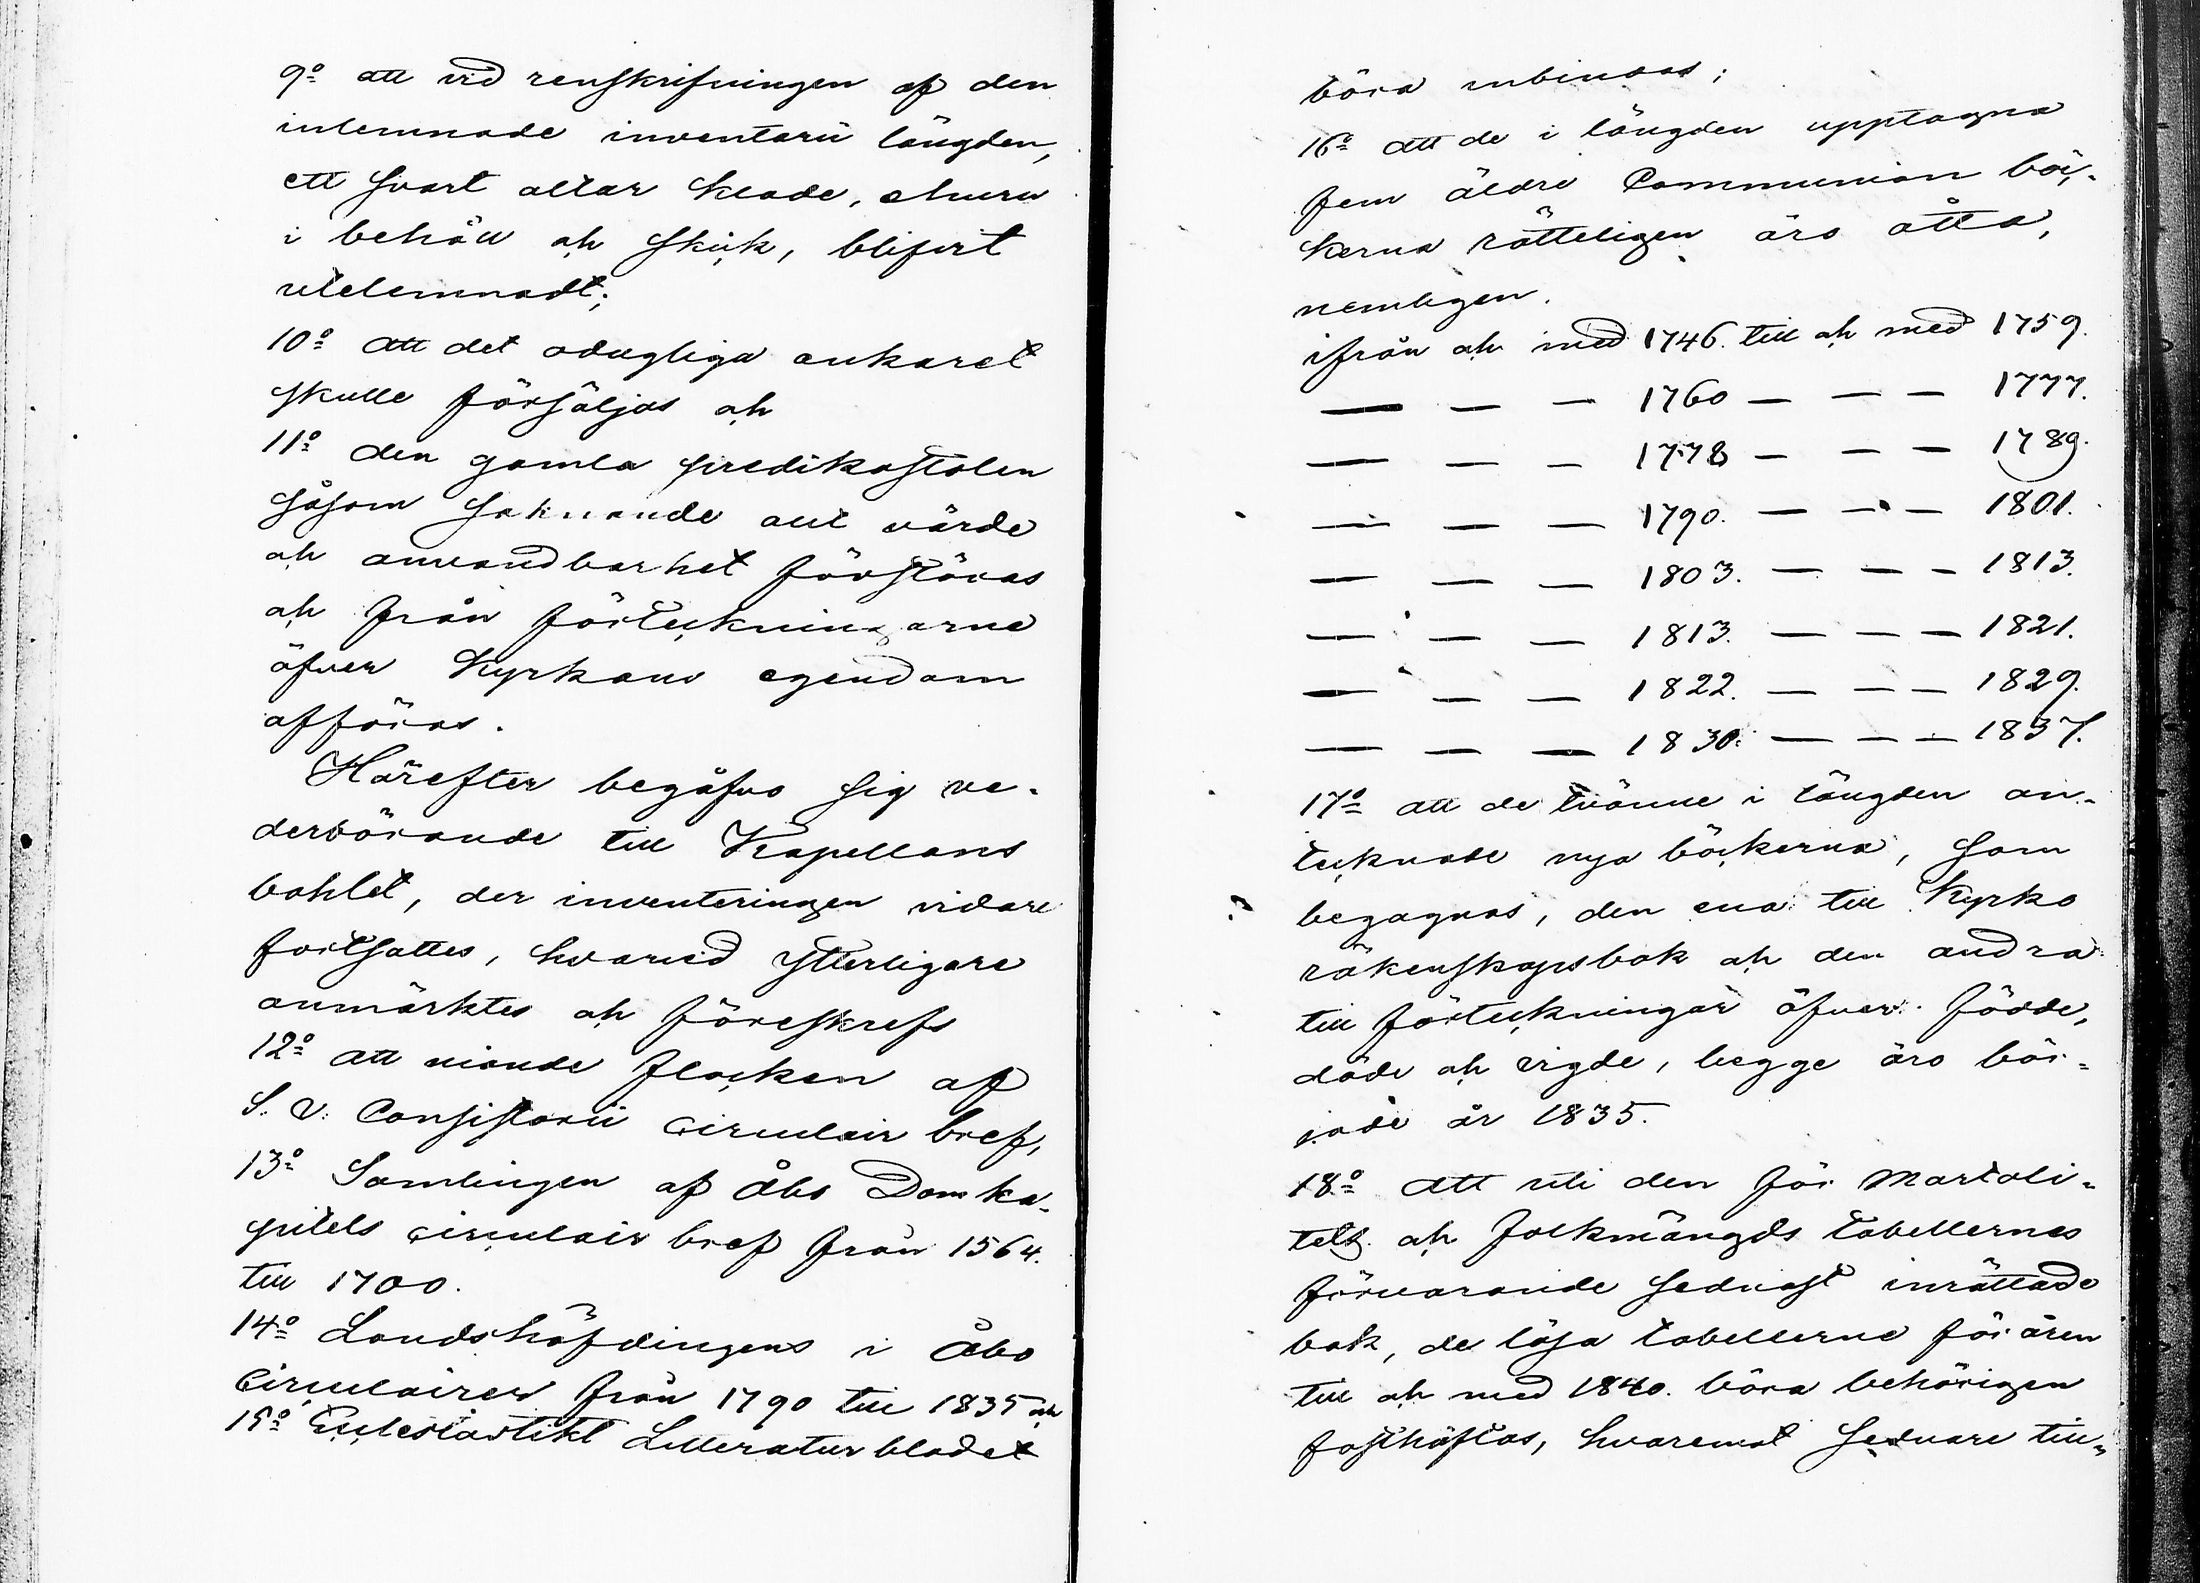 9:o att vid renskrifningen af den
inlemnade inventarii längden,
ett svart altar kläde, ehuru
i behåll och skick, blifvit
utelemnadt;
10:o att det odugliga ankaret
skulle försäljas och
11:o den gamla predikostolen
såsom saknande allt värde
och anvandbarhet förstöras
och från förteckningarne
öfver Kyrkans egendom
afföras.
Härefter begåfvo sig ve-
derbörande till Kapellans
bohlet, der inventeringen vidare
fortsattes, hvarvid ytterligare
anmärktes och föreskrefs
12:o att nionde flocken af
S. V. Consistorii circulair bref,
13:o Samlingen af Åbo Domka-
pitels circulair bref från 1564.
till 1700.
14:o Landshöfdingens i Åbo
Circulairer från 1790 till 1835 och
15:o Ecclesiastikt Litteratur bladet
böra inbindas;
16:o att de i längden upptagna
fem äldre Communion böc-
kerna rätteligen äro åtta,
nemligen.
ifrån och med 1746. till och med 1759.
— — — 1760 — — — 1777.
— — — 1778 — — — 1789.
— — — 1790. — — — 1801.
— — — 1803. — — — 1813.
— — — 1813. — — — 1821.
— — — 1822. — — — 1829.
— — — 1830. — — — 1837.
17:o att de tvänne i längden an-
tecknade nya böckerna, som
begagnas, den ena till Kyrko
räkenskapsbok och den andra
till förteckningar öfver födde,
döde och vigde, begge äro bör-
jade år 1835.
18:o att uti den för Mortali-
tets och folkmängds tabellernes
förvarande sednast inrättade
bok, de lösa tabellerne för åren
till och med 1840. böra behörigen
fasthäftas, hvaremot sednare till-